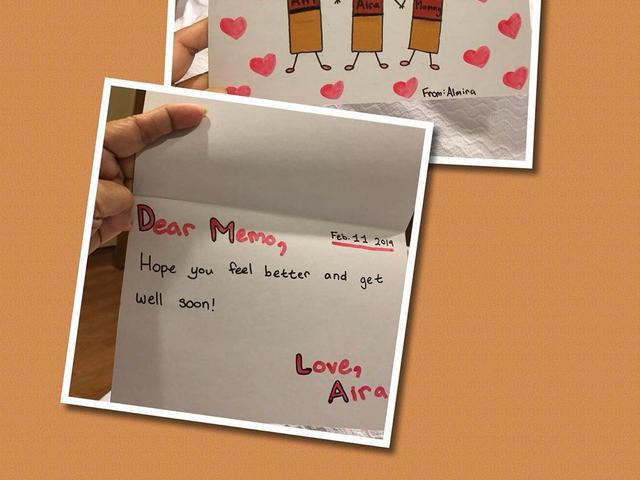 Aira
Mommy
From: Almira
Dear Memo,
Feb. 11 2019
Hope you feel better and get
well soon!
Love,
Aira